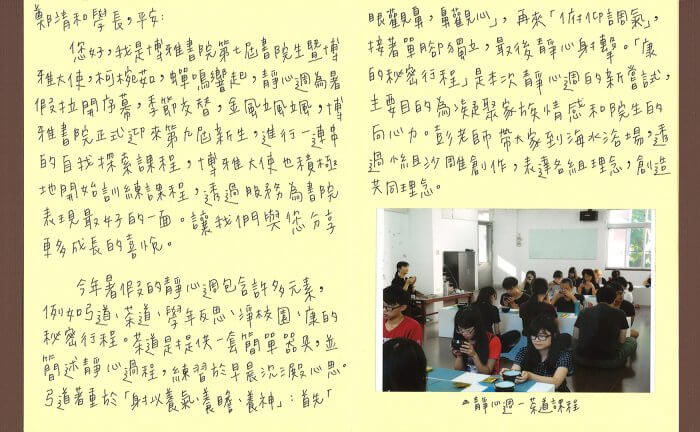 鄭清和學長，平安：
您好，我是博雅書院第七屆書院生暨博
雅大使，柯椀茹，蟬鳴響起，靜心週為暑
假拉開序幕，季節交替，金風颯颯，博
雅書院正式迎來第九屆新生，進行一連串
的自我探索課程，博雅大使也積極
地開始訓練課程，透過服務為書院
表現最好的一面。讓我們與您分享
更多成長的喜悅。
今年暑假的靜心週包含許多元素，
例如弓道、茶道、學年反思、淨校園、康的
秘密行程。茶道是提供一套簡單器具，並
簡述靜心過程，練習於早晨沉澱心思。
弓道著重於「射以養氣、養膽、養神」：首先「
眼觀鼻，鼻觀心」，再來「俯仰調氣」，
接著單腳獨立，最後靜心射擊。「康
的秘密行程」是本次靜心週的新嘗試，
主要目的為凝聚家族情感和院生的
向心力。彭老師帶大家到海水浴場，透
過小組沙雕創作，表達各組理念，創造
共同理念。
靜心週－茶道課程